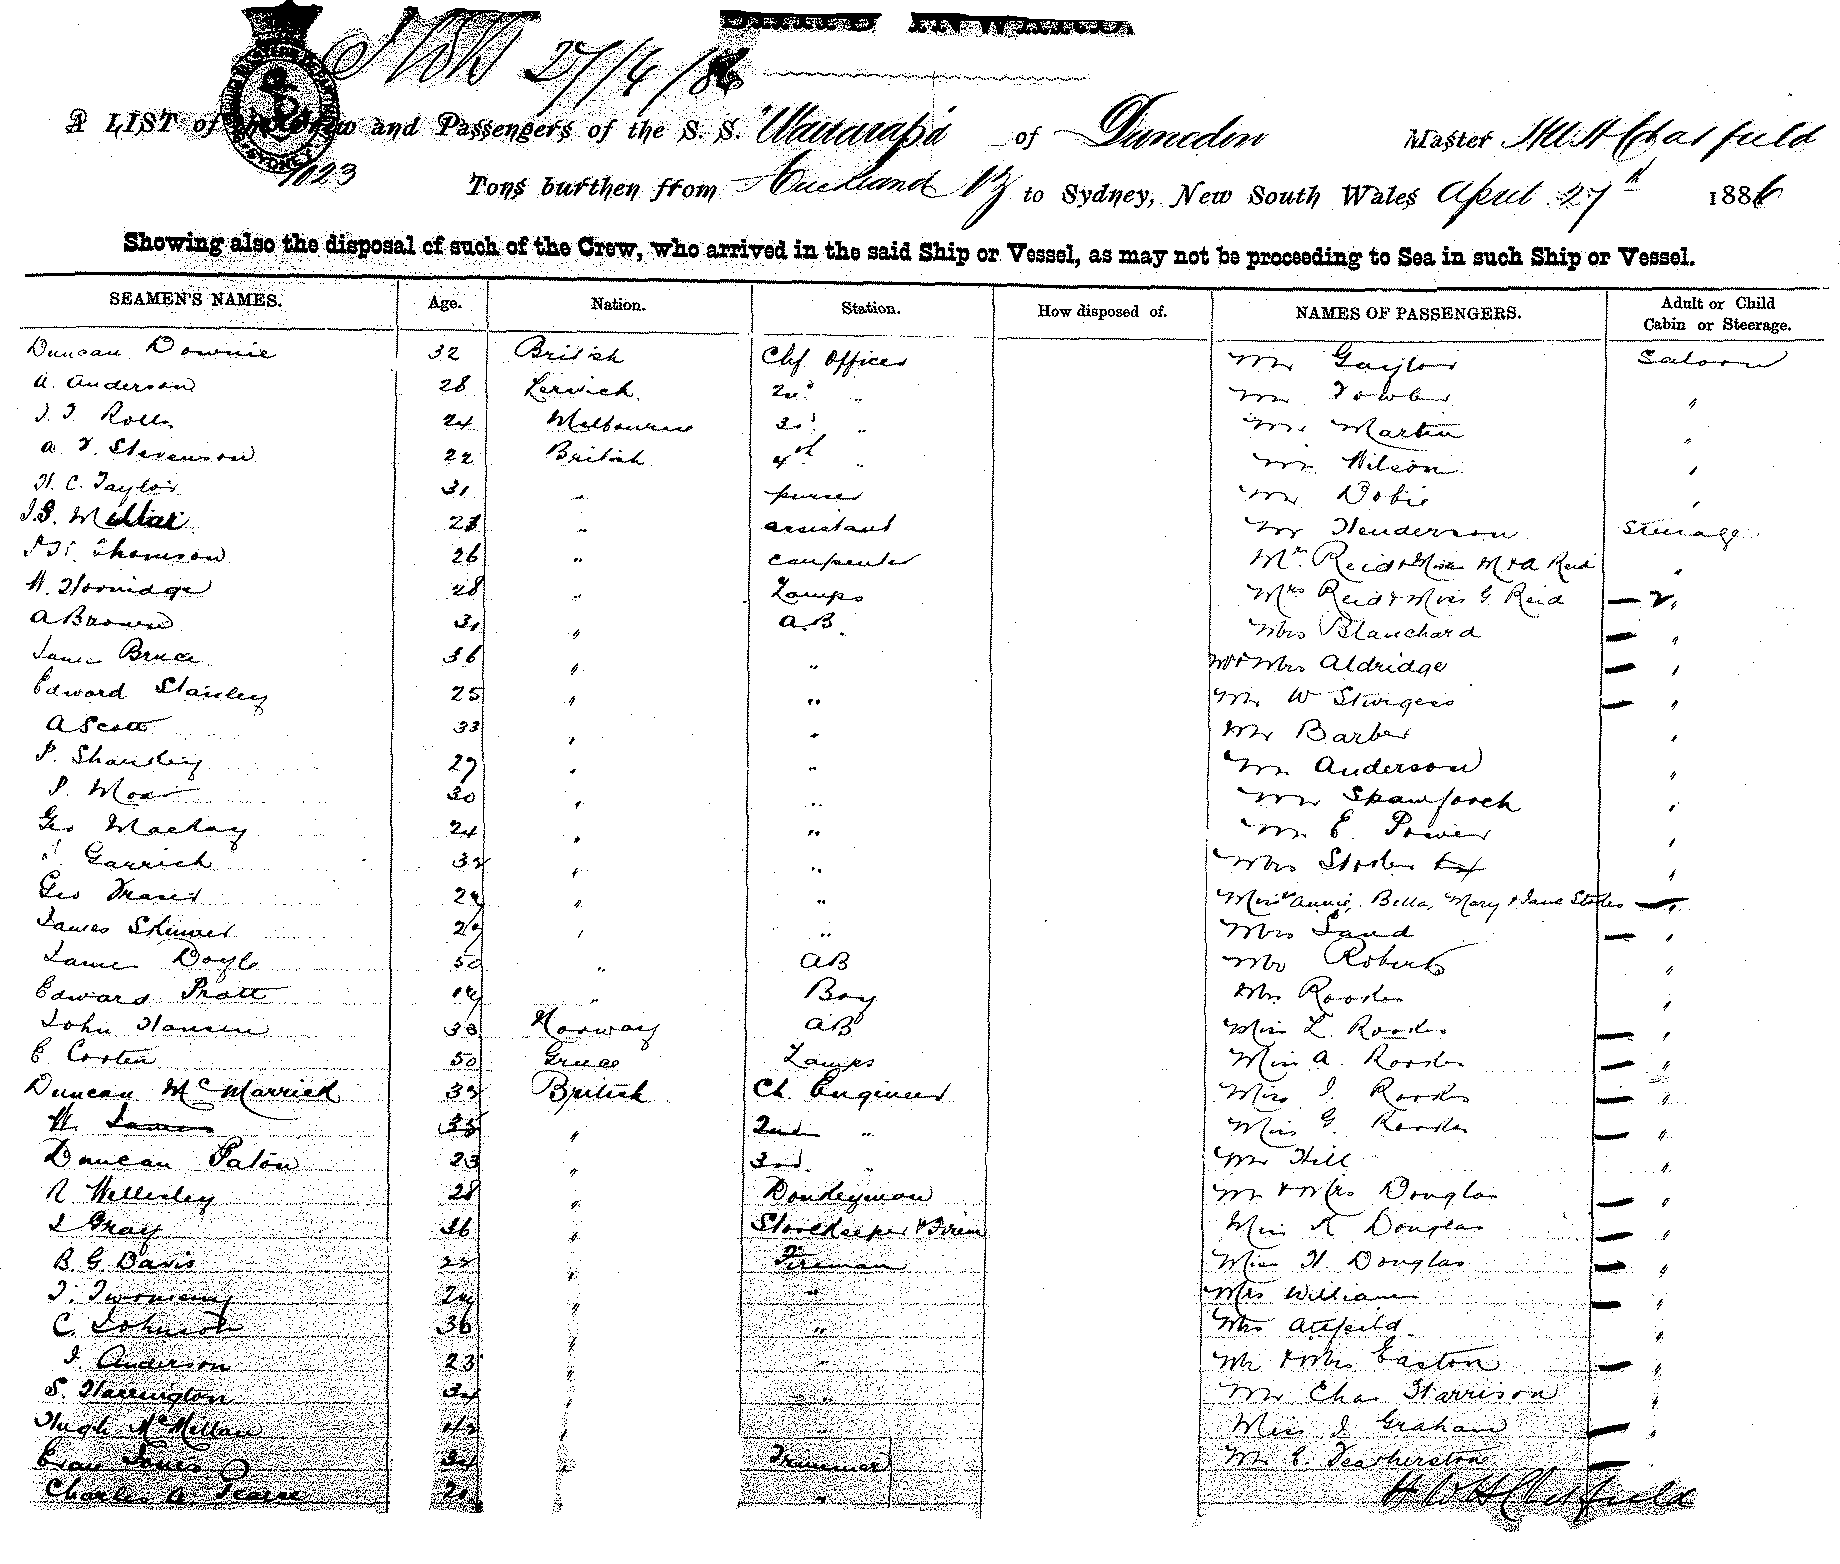 27/4/86
A LIST of the Crew and Passengers of the S. S. "Wairarapa" of Dunedin Master H W H Chatfield
1023 Tons burthen from Auckland NZ to Sydney, New South Wales April 27th 1886
Showing also the disposal of such of the Crew, who arrived in the said Ship or Vessel, as may not be proceeding to Sea in such Ship or Vessel.
SEAMEN'S NAMES. Age. Nation. Station. How disposed of. NAMES OF PASSENGERS. Adult or Child Cabin or Steerage.
Duncan Downie 32 British Chf Officer Mr Gaylor Saloon
A. Anderson 28 Lerwick 2nd " Mr Fowler "
Rolls 24 Melbourne 3rd " Martin "
A. F. Stevenson 22 British 4th " Mr Wilson "
H. C. Taylor 31 " purser Mr Dobie "
J.B. Millar " assistant Mr Henderson Steerage
Thomson 26 " carpenter Mr Reid & Miss M & A Reid "
H. Horridge 28 " Lamps Mrs Reid & Miss G Reid — 2 "
A Brown 31 " A.B. Mrs Blanchard — "
James Bruce 36 " " Mr & Mrs Aldridge — "
Edward Stanley 25 " " Mr W Sturgess — "
A Scott 33 " " Mr Barber "
P. 27 " " Mr Anderson "
P. 30 " " Mr Spawforth "
Geo Mackay 24 " " Mr E. Power "
Garrick 32 " " Mrs Stokes "
Geo Fraser " " Miss Annie, Bella, Mary & Jane Stokes — "
James Skinner 29 " " Mrs — "
James Doyle 50 " AB Roberts "
Edward Pratt " Boy Mrs Roodes "
John Hansen 33 Norway AB Miss L Roodes — "
E Costen 50 Greece Lamps Miss A. Roodes — "
Duncan McMarrick British Ch. Engineer Miss J. Roodes — "
H. James 33 " 2nd " Miss G. Roodes — "
Duncan Paton 23 " 3rd " Mr Hill "
R Wellesley 28 " Donkeyman Mr & Mrs Douglas — "
J Gray 36 " Storekeeper & Firem Miss K Douglas — "
B. G. Davis " Fireman Miss H Douglas — "
T. Twomeny " " Mrs William — "
C. Johnson 36 " " Mrs Attfeild "
J. Anderson 23 " " Mr & Mrs Easton — "
S. Harrington 34 " " Mr Chas Harrison "
Hugh McMillan 42 " Miss J Graham — "
Evan Jones 34 " Trimmer E. Featherstone —
Charles A. " "
H W H Chatfield